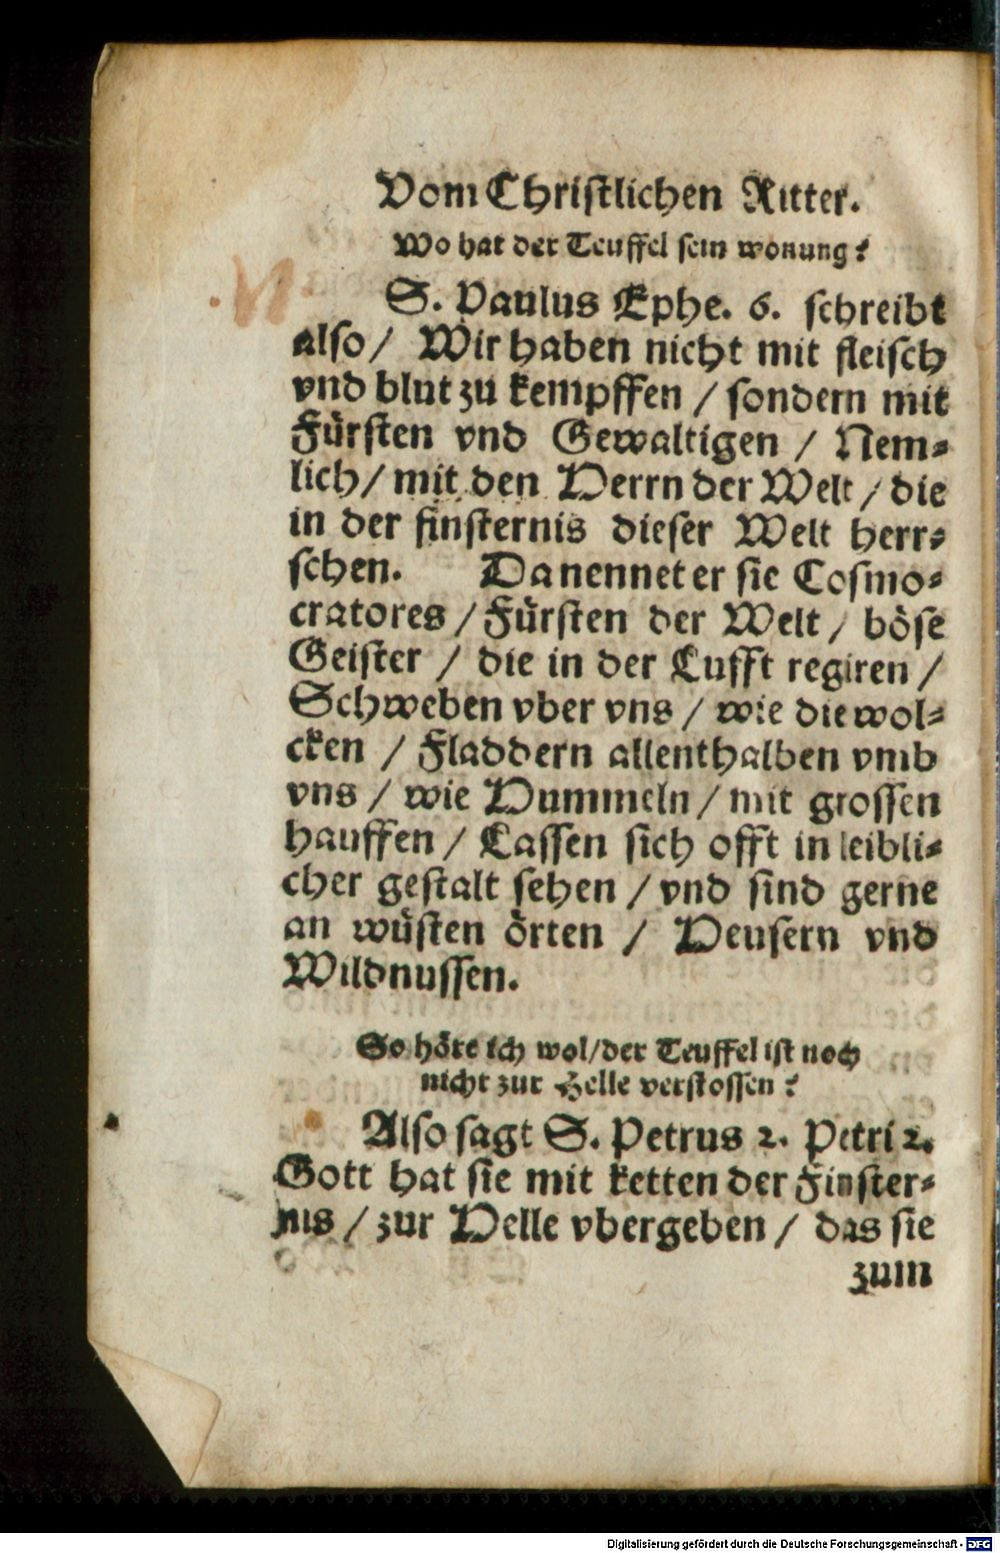 Vom Christlichen Ritter.
Wo hat der Teuffel sein wonung?
N.
S. Paulus Ephe. 6. schreibt
also/ Wir haben nicht mit fleisch
vnd blut zu kempffen / sondern mit
Fürsten vnd Gewaltigen / Nem-
lich/ mit den Herrn der Welt / die
in der finsternis dieser Welt herr-
schen. Da nennet er sie Cosmo-
cratores / Fürsten der Welt / böse
Geister / die in der Lufft regiren /
Schweben vber vns / wie die wol-
cken / Fladdern allenthalben vmb
vns / wie Hummeln / mit grossen
hauffen / Lassen sich offt in leibli-
cher gestalt sehen / vnd sind gerne
an wüsten örten / Heusern vnd
Wildnussen.
So höre ich wol/der Teuffel ist noch
nicht zur Helle verstossen?
Also sagt S. Petrus 2. Petri 2.
Gott hat sie mit ketten der Finster-
nis / zur Helle vbergeben / das sie
zum
Digitalisierung gefördert durch die Deutsche Forschungsgemeinschaft - DFG